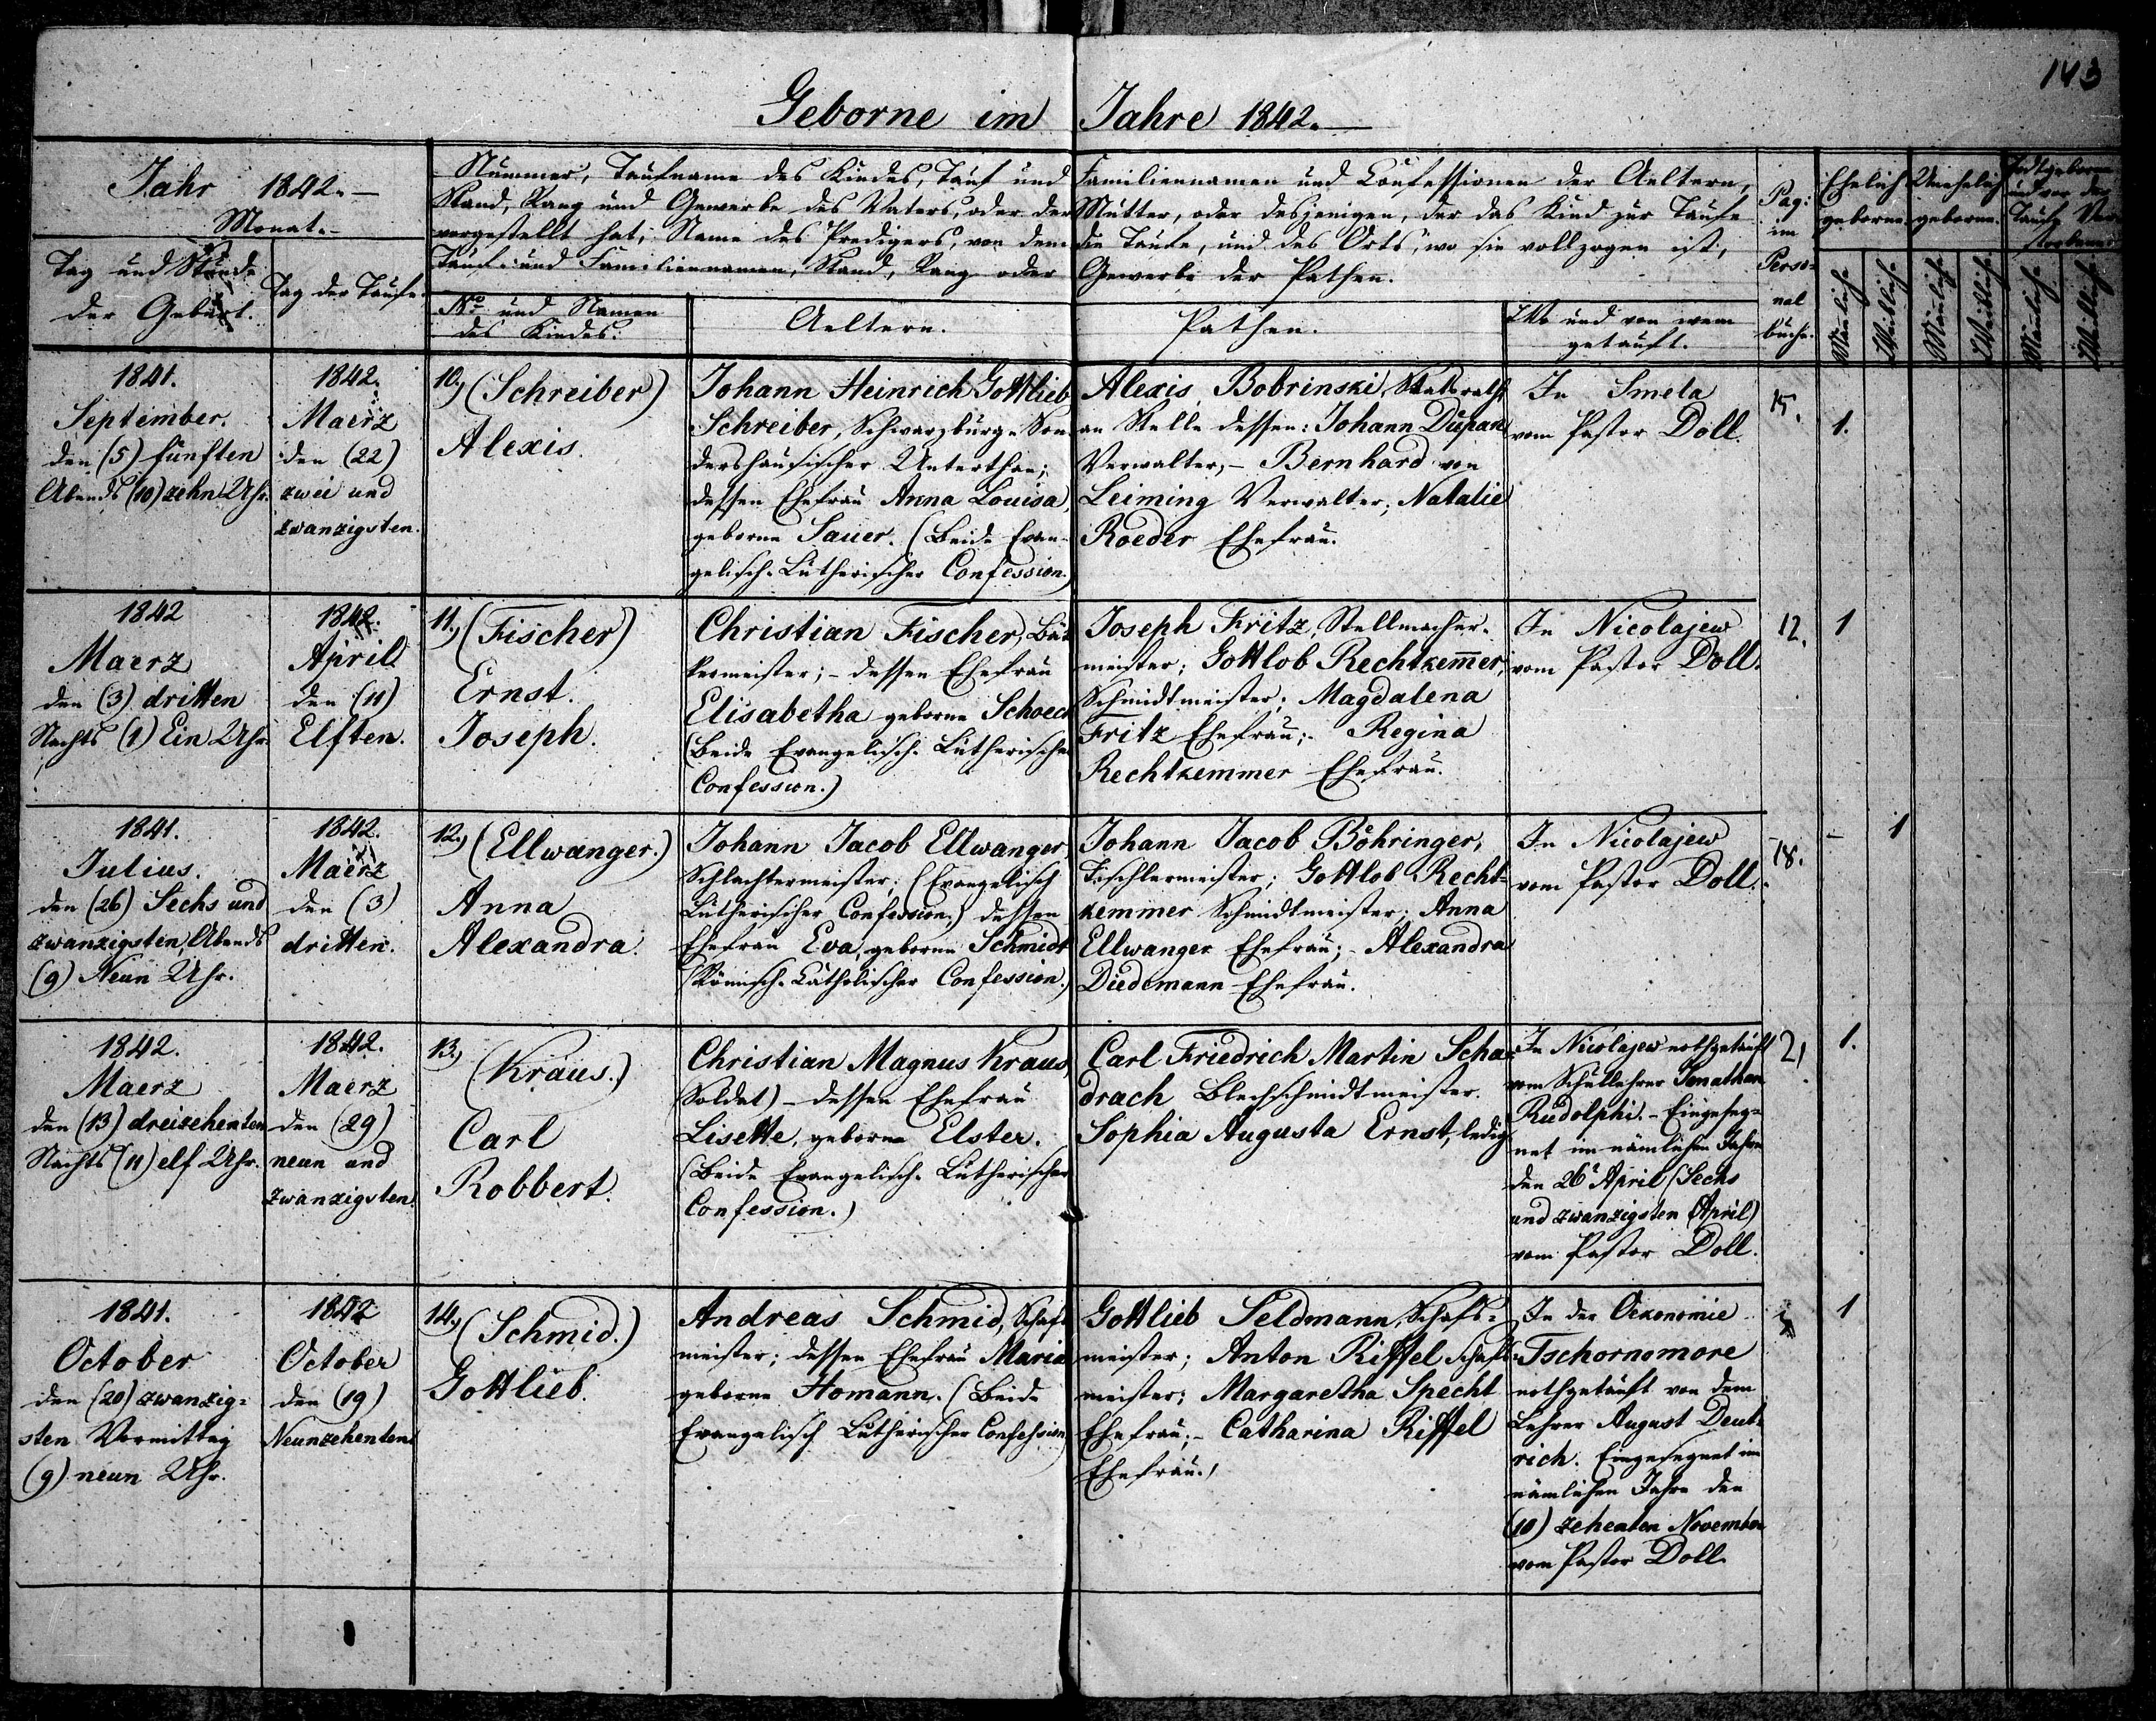 143
Geborne im Jahre 1842.
Jahr 1842.
Monat.
Tag und Stunde
der Geburt.
Tag der Taufe.
Nummer, Taufname des Kindes, Tauf und Familiennamen und Confessionen der Aeltern,
Stand, Rang und Gewerbe des Vaters, oder der Mutter, oder desjenigen, der das Kind zur Taufe
vorgestellt hat; Name des Predigers, von dem die Taufe, und des Orts, wo sie vollzogen ist,
Tauf- und Familiennamen, Stand, Rang oder Gewerbe der Pathen.
No und Namen
des Kindes.
Aeltern.
Pathen.
Wo und von wem
getauft.
Pag:
im
Perso-
nal
buche.
Ehelich
geborne.
Unehelich
geborne.
Todtgeborne
und vor der
Taufe Ver-
storbene.
Männlich.
Weiblich.
Männlich.
Weiblich.
Männlich.
Weiblich.
1841.
September.
den (5) fünften
Abends (10) zehn Uhr.
1842.
Maerz
den (22)
zwei und
zwanzigsten.
10.) (Schreiber)
Alexis.
Johann Heinrich Gottlieb
Schreiber, Schwarzburg-Son-
dershausischer Unterthan;
dessen Ehefrau Anna Louisa,
geborne Sauer. (Beide Evan-
gelisch-Lutherischer Confession.)
Alexis Bobrinski, Statsrath
an Stelle dessen: Johann Dupan
Verwalter; - Bernhard von
Leiming Verwalter; Natalie
Roeder Ehefrau.
In Smela
vom Pastor Doll.
15.
1.
1842
Maerz
den (3) dritten
Nachts (1) Ein Uhr.
1842.
April
den (11)
Elften.
11.) (Fischer)
Ernst.
Joseph.
Christian Fischer, Bäk-
kermeister; - dessen Ehefrau
Elisabetha geborne Schoeck
(Beide Evangelisch-Lutherischer
Confession.)
Joseph Fritz, Stellmacher-
meister; Gottlob Rechtkem̅er,
Schmidtmeister; Magdalena
Fritz Ehefrau; - Regina
Rechtkemmer Ehefrau.
In Nicolajew
vom Pastor Doll.
12.
1
1841.
Julius.
den (26) Sechs und
zwanzigsten, Abends
(9) Neun Uhr.
1842.
Maerz
den (3)
dritten.
12.) (Ellwanger.)
Anna
Alexandra.
Johann Jacob Ellwanger,
Schlachtermeister; (Evangelisch
Lutherischer Confession.) dessen
Ehefrau Eva, geborne Schmidt
(Römisch-Katholischer Confession.)
Johann Jacob Böhringer,
Tischlermeister; Gottlob Recht-
kemmer Schmidtmeister; Anna
Ellwanger Ehefrau; - Alexandra
Diedemann Ehefrau.
In Nicolajew
vom Pastor Doll.
18.
-
1
1842.
Maerz
den (13) dreizehenten
Nachts (11) elf Uhr.
1842.
Maerz
den (29)
neun und
zwanzigsten.
13.)
(Kraus.)
Carl
Robbert.
Christian Magnus Kraus,
(Soldat) - dessen Ehefrau
Lisette, geborne Elster.
(Beide Evangelisch-Lutherischer
Confession.)
Carl Friedrich Martin Scha-
drach Blechschmidtmeister.
Sophia Augusta Ernst, ledig
In Nicolajew nothgetauft
vom Schullehrer Jonathan
Rudolphi. - Eingeseg-
net im nämlichen Jahre
den 26t April (Sechs
und zwanzigsten April)
vom Pastor Doll.
21
1.
1841.
October
den (20) zwanzig-
sten Vormittag
(9) neun Uhr.
1842
October
den (19)
Neunzehenten
14.) (Schmid.)
Gottlieb.
Andreas Schmid, Schaf-
meister; dessen Ehefrau Maria
geborne Homann. (Beide
Evangelisch Lutherischer Confession)
Gottlieb Seldmann, Schaf-
meister; Anton Riffel Schaf-
meister; Margaretha Specht
Ehefrau; - Catharina Riffel
Ehefrau.
In der Oekonomie
Tschornomore
nothgetauft von dem
Lehrer August Deut-
rich. Eingesegnet im
nämlichen Jahre den
(10) zehenten November
vom Pastor Doll.
1